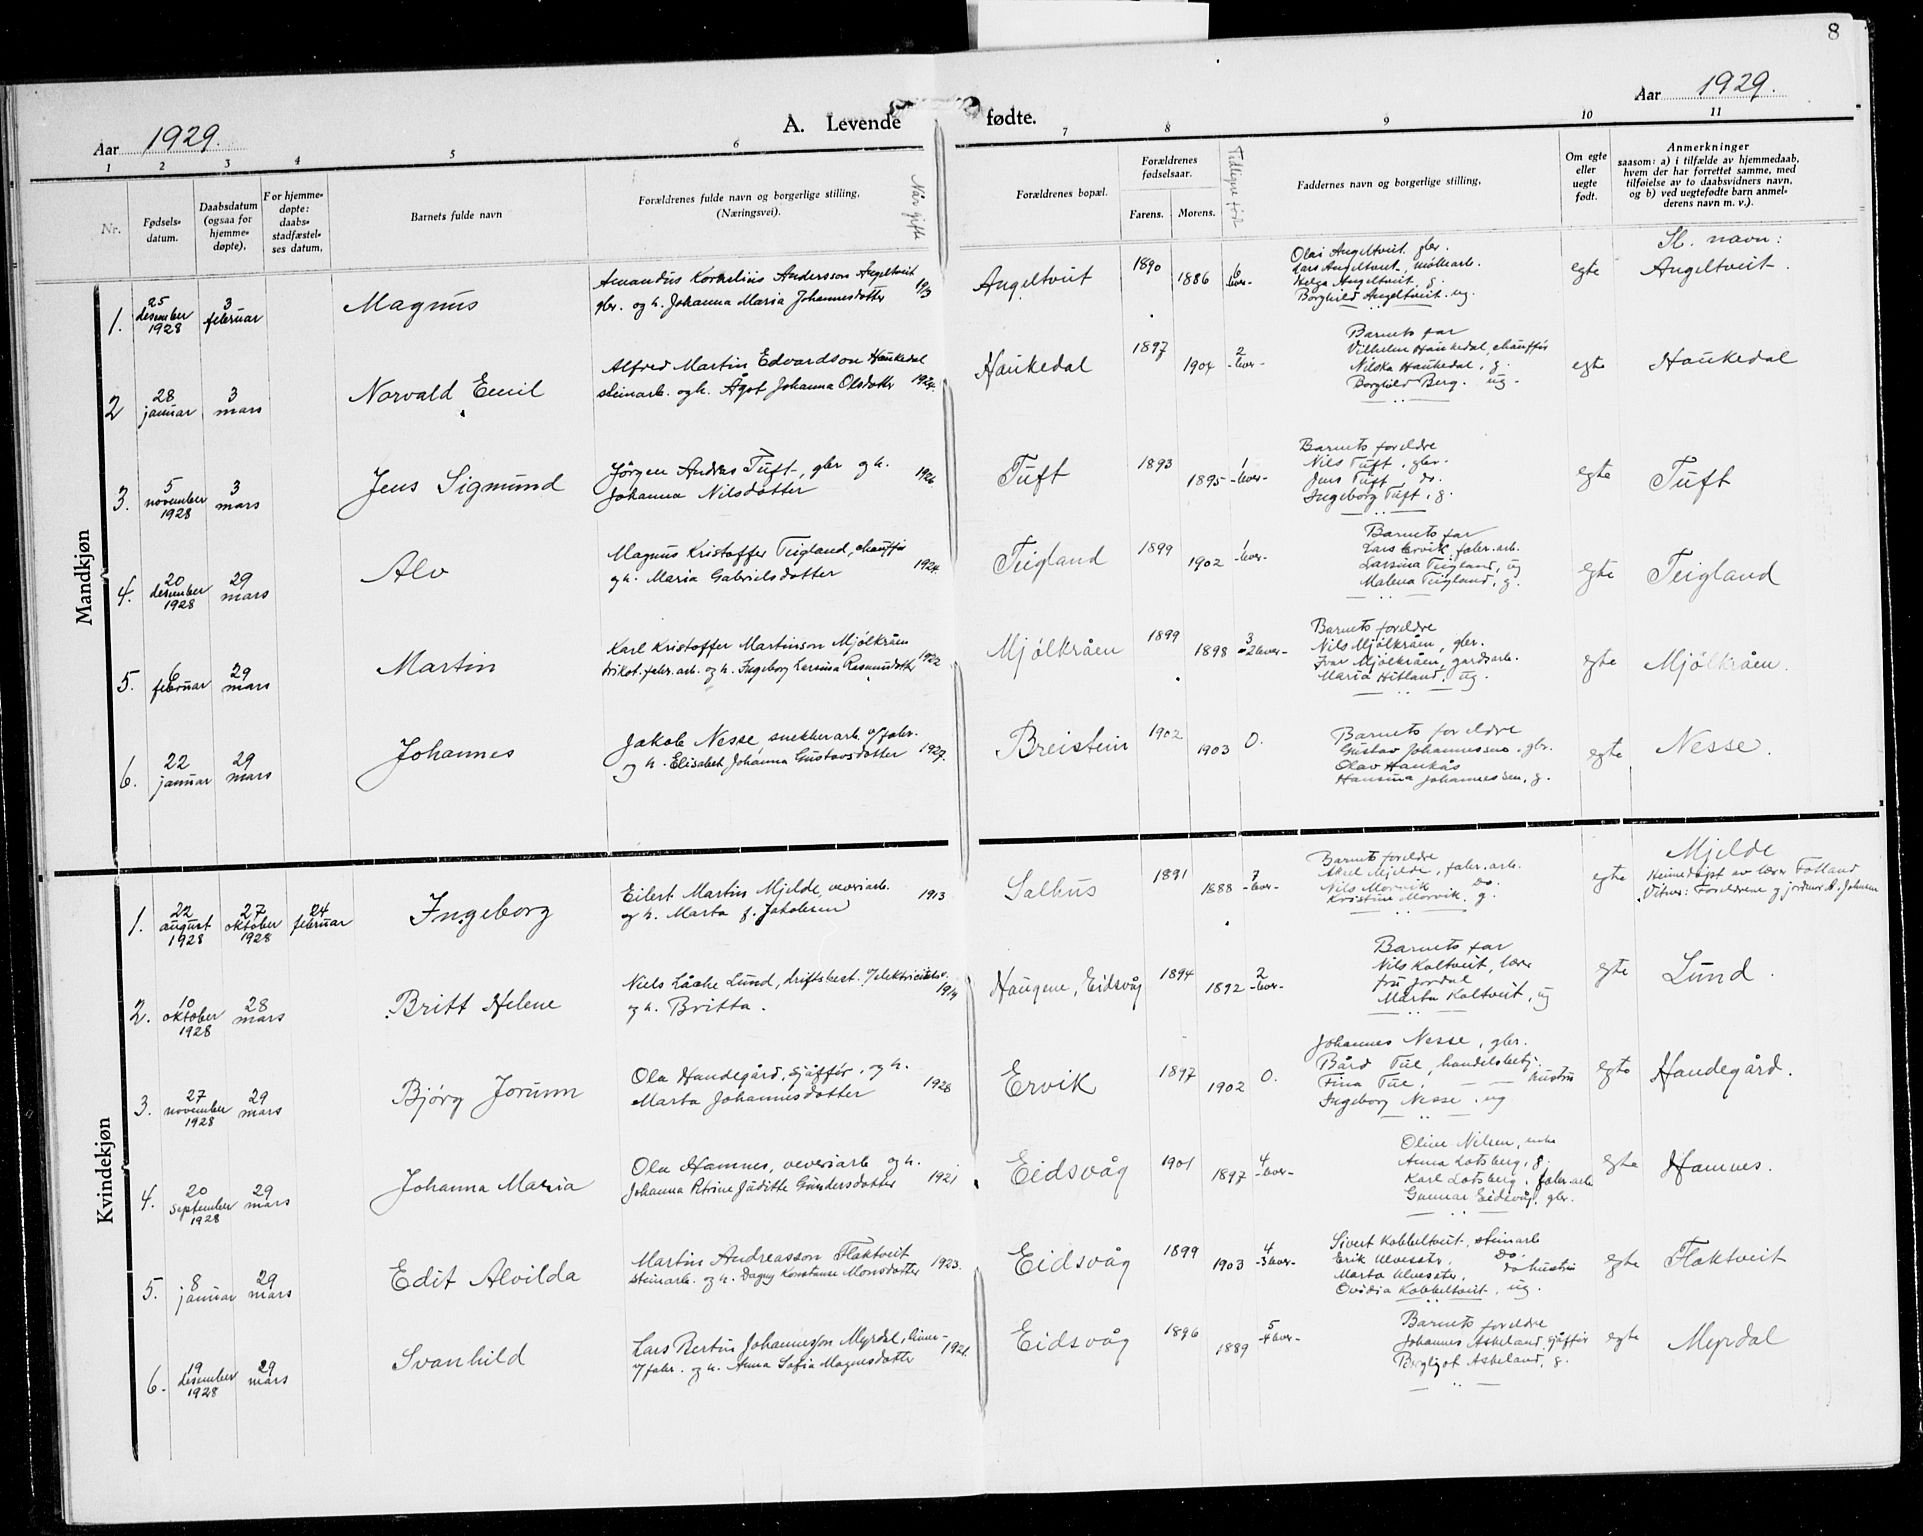 8
Aar 1929.
Aar 1929.
A. Levende fødte.
1 2 3 4 5 6 7 8 9 10 11
Nr.
Fødsels-
datum.
Daabsdatum
(ogsaa for
hjemme-
døpte).
For hjemme-
døpte:
daabs-
stadfæstel-
ses datum.
Barnets fulde navn
Forældrenes fulde navn og borgerlige stilling,
(Næringsvei).
Når gifte
Forældrenes bopæl.
Forældrenes
fødselsaar.
Farens. Morens.
Faddernes navn og borgerlige stilling,
Om egte
eller
uegte
født.
Anmerkninger
saasom: a) i tilfælde av hjemmedaab,
hvem der har forrettet samme, med
tilføielse av to daabsvidners navn,
og b) ved uegtefødte barn anmel-
derens navn m. v.).
Mandkjøn
Sl. navn:
1. 25 desember 1928
3 februar
Magnus
Amandus Kornelius Andersson Angeltveit
gbr. og h. Johanna Maria Johannesdotter
1913
Angeltveit
1890 1886
6 lever
Olai Angeltveit gbr.
Lars Angeltveit, møllearb.
Helga Angeltveit g.
Borghild Angeltveit. ug.
egte
Angeltveit.
2 28 januar
3 mars
Norvald Emil
Alfred Martin Edvardson Haukedal
steinarb. og h. Ågot Johanna Olsdotter
1924.
Haukedal
1897 1904
2 - lever -
Barnets far
Vilhelm Haukedal, chauffør
Nilska Haukedal, g.
Borghild Berg. ug.
egte
Haukedal
3. 5 november 1928
3 mars
Jens Sigmund
Jørgen Andreas Tuft, gbr og h.
Johanna Nilsdotter
1926
Tuft
1893 1895
1 - lever -
Barnets foreldre
Nils Tuft, gbr.
Jens Tuft, do.
Ingeborg Tuft, g.
egte
Tuft
4. 20 desember 1928
29 mars
Alv
Magnus Kristoffer Teigland, chauffør
og h. Maria Gabrielsdotter
1924.
Teigland
1899 1902
1 - lever -
Barnets far
Lars Ervik, fabr. arb.
Larsina Teigland, ug
Malena Teigland, g.
egte
Teigland
5. 6 februar
29 mars
Martin
Karl Kristoffer Martinson Mjølkråen
trikot. fabr. arb. og h. Ingeborg Larsina Rasmusdotter
1922
Mjølkråen
1899 1898
3 - 2 lever -
Barnets foreldre
Nils Mjølkråen, gbr.
Ivar Mjølkråen, gardsarb.
Maria Hitland, ug.
egte
Mjølkråen.
6. 22 januar
29 mars
Johannes
Jakob Nesse snekkerarb. v/ fabr.
og h. Elisabet Johanna Gustavsdotter
1927.
Breistein
1902 1903
0.
Barnets foreldre
Gustav Johannessen, gbr.
Olav Haukås
Hansina Johannessen, g.
egte
Nesse.
Kvindekjøn
1. 22 august 1928
27 oktober 1928
24 februar
Ingeborg
Eilert Martin Mjelde, veveriarb.
og h. Marta f. Jakobsen
1913
Salhus
1891 1888
7 - lever -
Barnets foreldre
Aksel Mjelde, fabr. arb.
Nils Morvik do.
Kristine Morvik, g.
egte
Mjelde
Heimedøpt av lærer Fotland
Vitner: Foreldrene og jordmor A. Johnsen
2. 10 oktober 1928
28 mars
Britt Helene
Niels Låche Lund, driftsbest. v/ elektricitetsv.
og h. Britta.
1919
Haugene, Eidsvåg
1894 1892
2 - lever -
Barnets far
Nils Koltveit, lærer
fru Jordal
Marta Koltveit, ug
egte
Lund.
3. 27 november 1928
29 mars
Bjørg Jorunn
Ola Handegård, sjåffør, og h.
Marta Johannesdotter
1928
Ervik
1897 1902
0.
Johannes Nesse, gbr.
Bård Tue, handelsbetj.
Fina Tue, — — hustru
Ingeborg Nesse, ug
egte
Handegård.
4. 20 september 1928
29 mars
Johanna Maria
Ola Hamnes, veveriarb og h.
Johanna Petrine Juditte Gundersdotter
1921
Eidsvåg
1901 1897
4 - lever -
Oline Nilsen, enke
Anna Lotsberg, g.
Karl Lotsberg, fabr. arb
Gunnar Eidsvåg. gbr.
egte
Hamnes.
5. 8 januar
29 mars
Edit Alvilda
Martin Andreasson Flaktveit
steinarb. og h. Dagny Konstanse Monsdotter
1923.
Eidsvåg
1899 1903
4 - 3 lever -
Sivert Kobbeltveit, steinarb
Erik Ulvesæter, do.
Marta Ulvesæter, do hustru
Ovidia Kobbeltveit, ug.
egte
Flaktveit
6. 19 desember 1928
29 mars
Svanhild
Lars Bertin Johannesson Myrdal,
v/ fabr. og h. Anna Sofia Magnusdotter
1921.
Eidsvåg
1896 1889
5 - 4 lever -
Barnets foreldre
Johannes Askeland, sjåffør
Bergljot Askeland, g.
egte
Myrdal